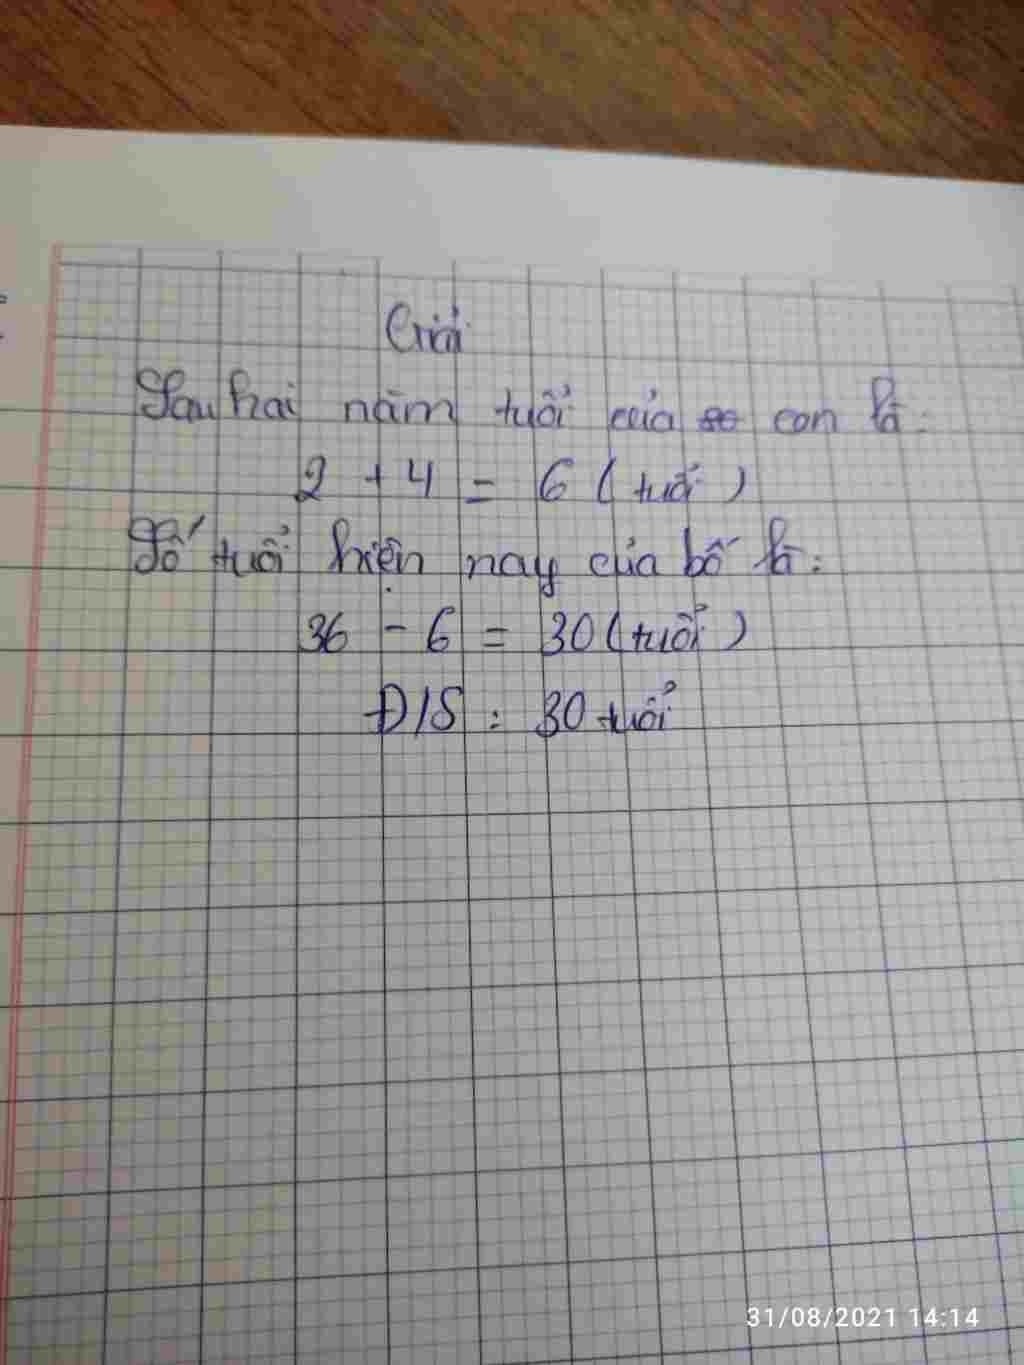 Giải
Sau hai năm tuổi của so con là:
2 + 4 = 6 (tuổi)
Số tuổi hiện nay của bố là:
36 - 6 = 30 (tuổi)
Đ/S: 30 tuổi
31/08/2021 14:14